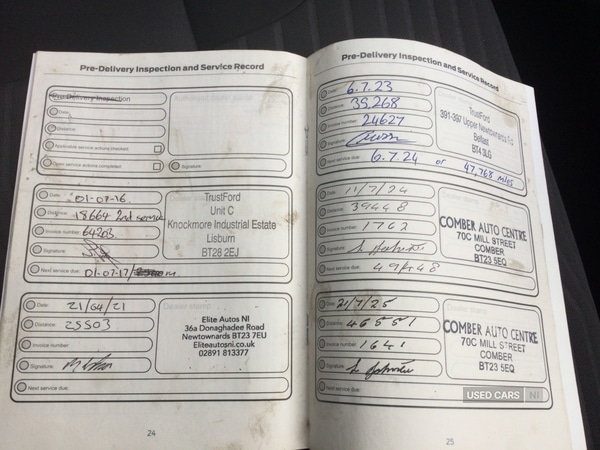 Pre-Delivery Inspection and Service Record
Pre-Delivery Inspection
Date:
Distance:
Applicable service actions checked:
Open service actions completed:
Signature:
Date: 01-07-16
Distance: 18664 2nd service
Invoice number: 64203
Signature:
Next service due: 01-07-17/
TrustFord
Unit C
Knockmore Industrial Estate
Lisburn
BT28 2EJ
Date: 21/04/21
Distance: 25503
Invoice number:
Signature:
Next service due:
Elite Autos NI
36a Donaghadee Road
Newtownards BT23 7EU
Eliteautosni.co.uk
02891 813377
24
Pre-Delivery Inspection and Service Record
Date: 6.7.23
Distance: 35,268
Invoice number: 24627
Signature:
Next service due: 6.7.24 or 47,768 miles
TrustFord
391-397 Upper Newtownards Rd
Belfast
BT4 3LG
Date: 11/7/24
Distance: 39448
Invoice number: 1762
Signature:
Next service due: 49448
COMBER AUTO CENTRE
70C MILL STREET
COMBER
BT23 5EQ
Date: 21/7/25
Distance: 46551
Invoice number: 1641
Signature:
Next service due:
COMBER AUTO CENTRE
70C MILL STREET
COMBER
BT23 5EQ
25
USED CARS NI